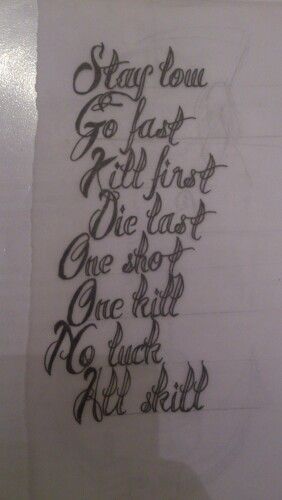 Stay low
Go fast
Kill first
Die last
One shot
One kill
No luck
All skill